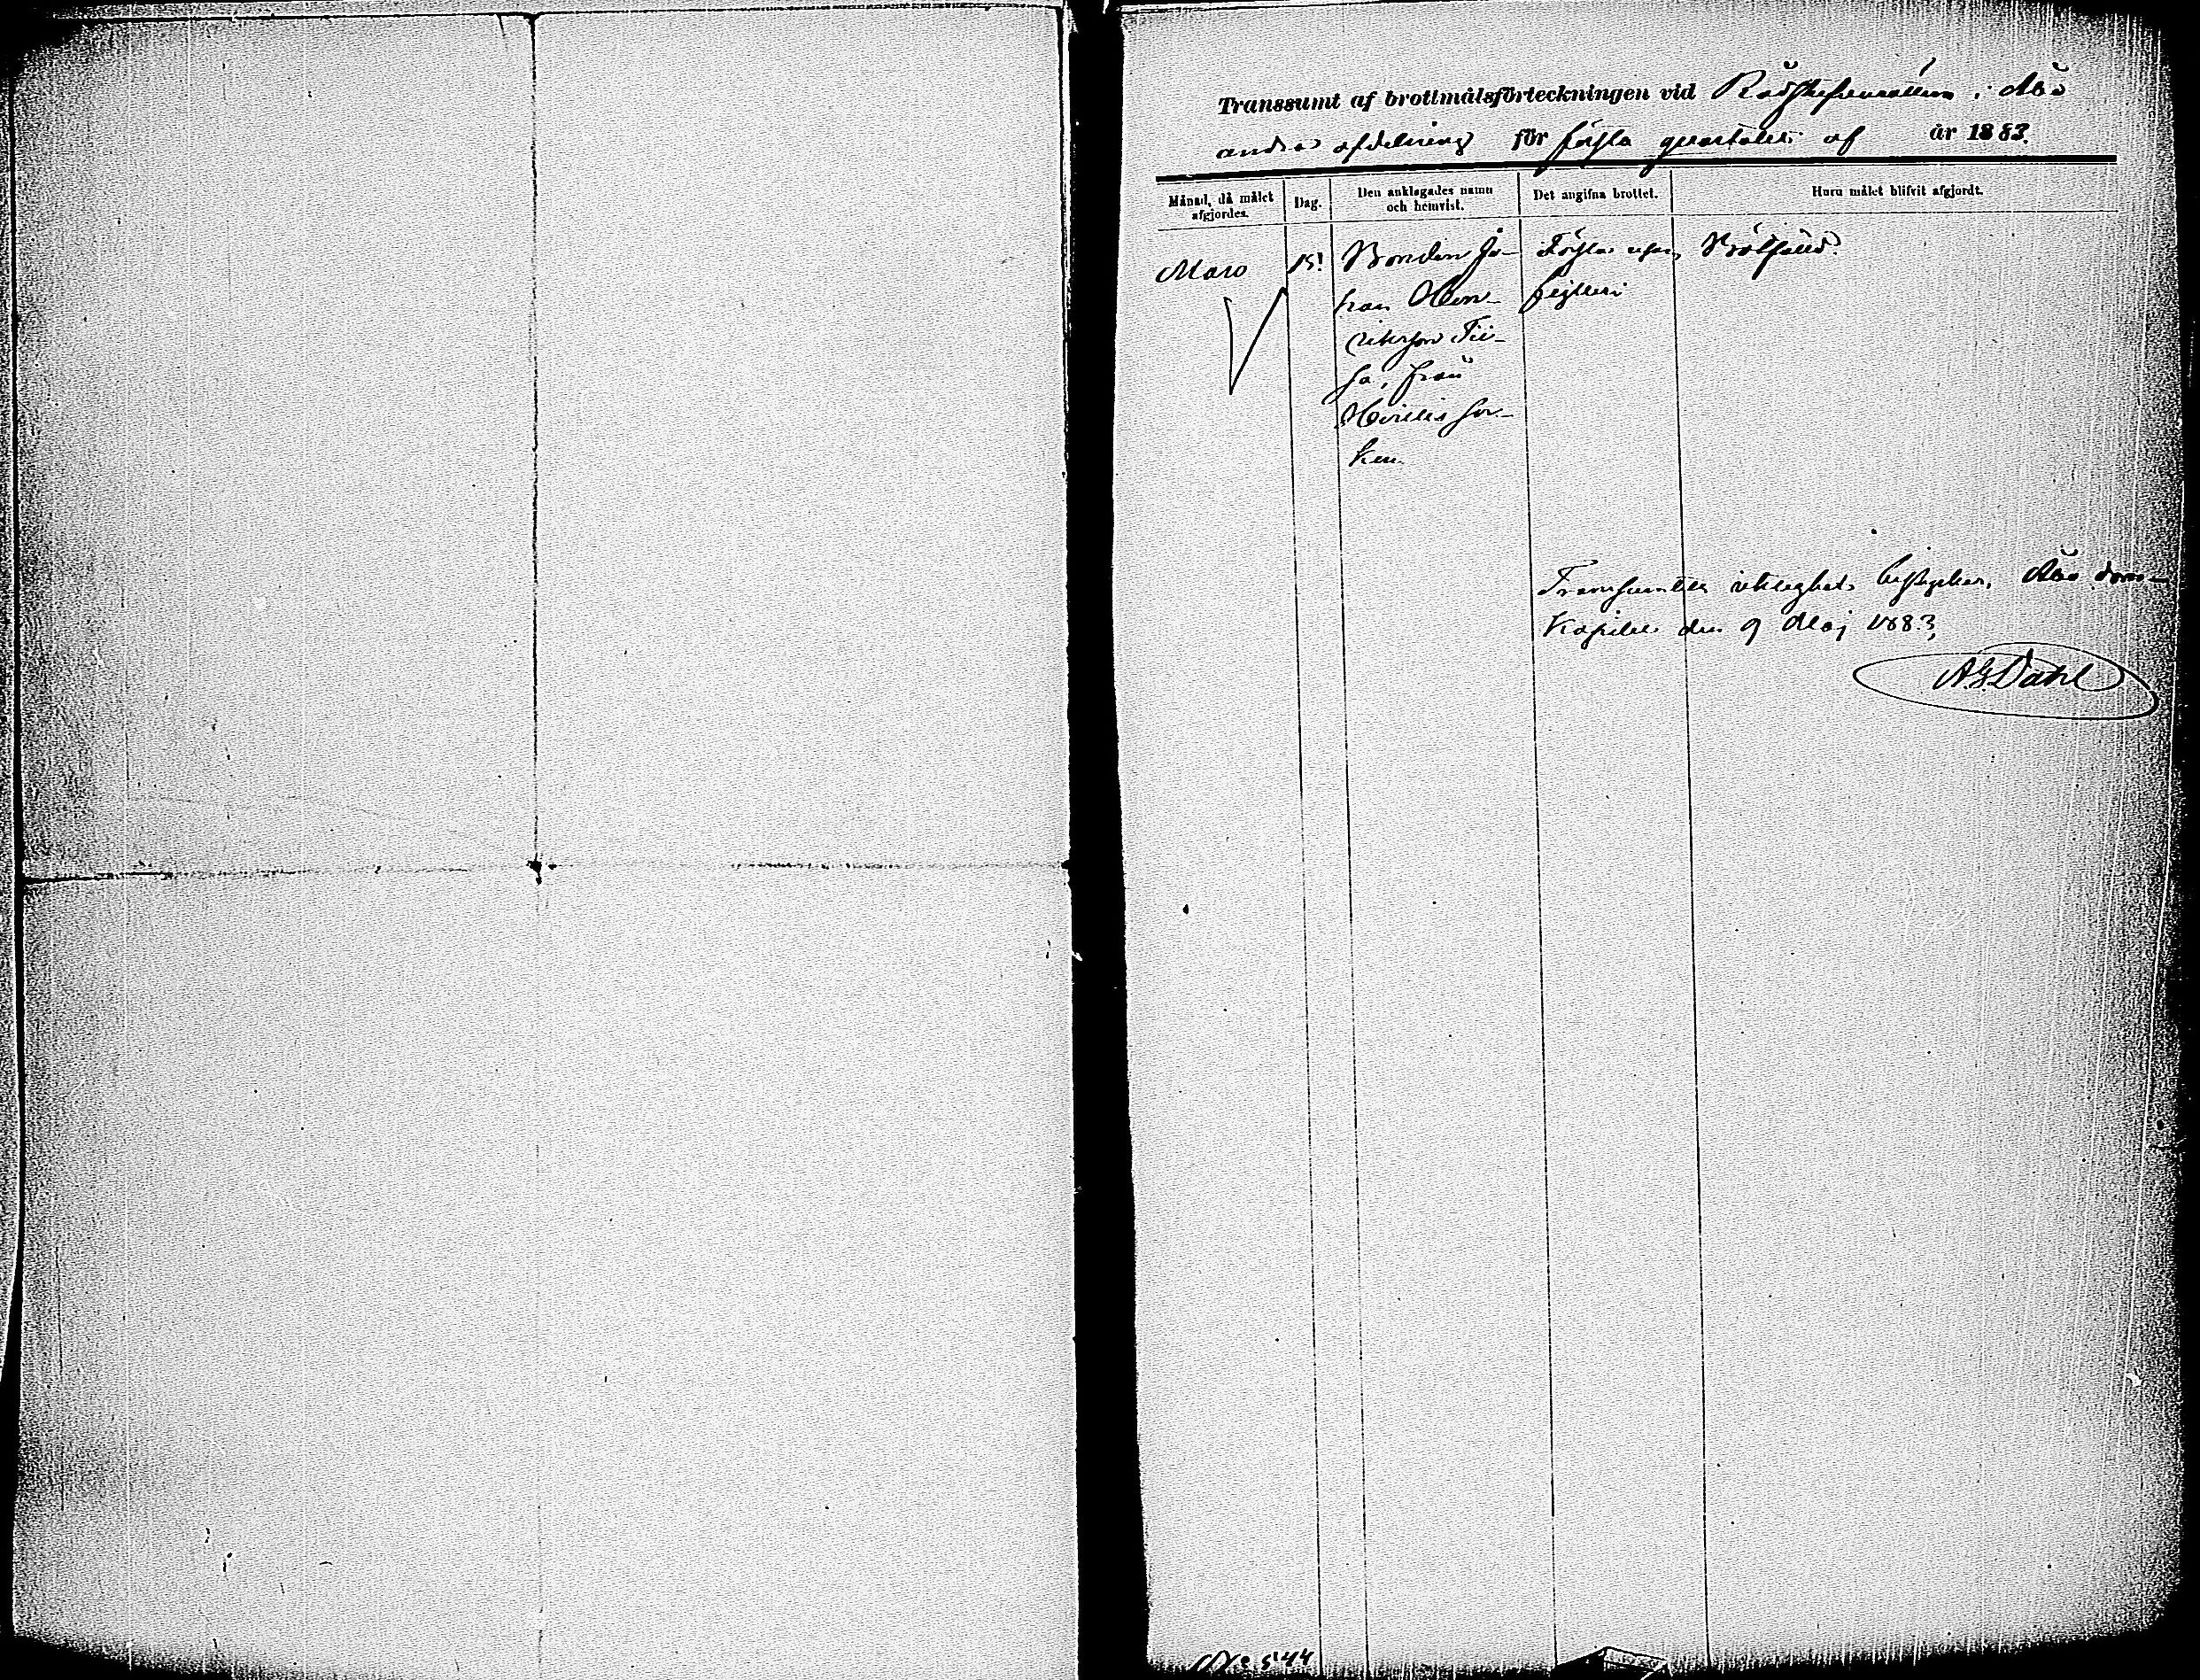 Transsumt af brottmålsförteckningen vid Rådstufvurätten i Åbo
andra afdelning för första quartalet af år 1883.
Månad, då målet afgjordes. Dag. Den anklagades namn och hemvist. Det angifna brottet. Huru målet blifvit afgjordt.
Mars 15! Bonden Jo- Första resan Bötfälld.
han Hen- fylleri
riksson Tii-
sa, från
Virmo soc-
ken.
Transsumtets riktighet bestyrker, Åbo Dom-
kapitel den 9 Maj 1883,
A. G. Dahl
No 544